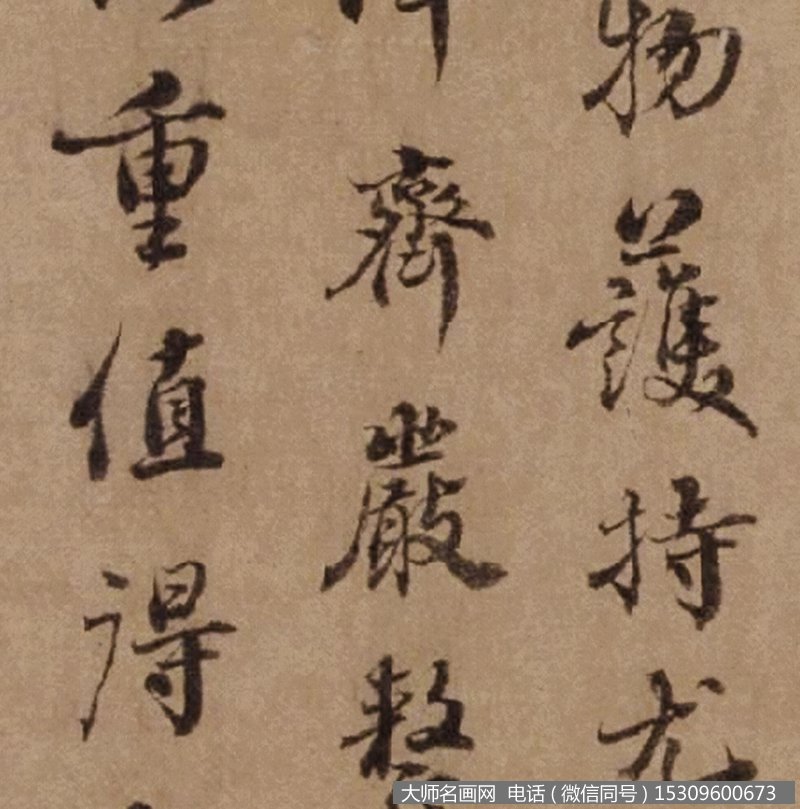 物護持尤
齊嚴整
重值得
大师名画网 电话（微信同号）15309600673